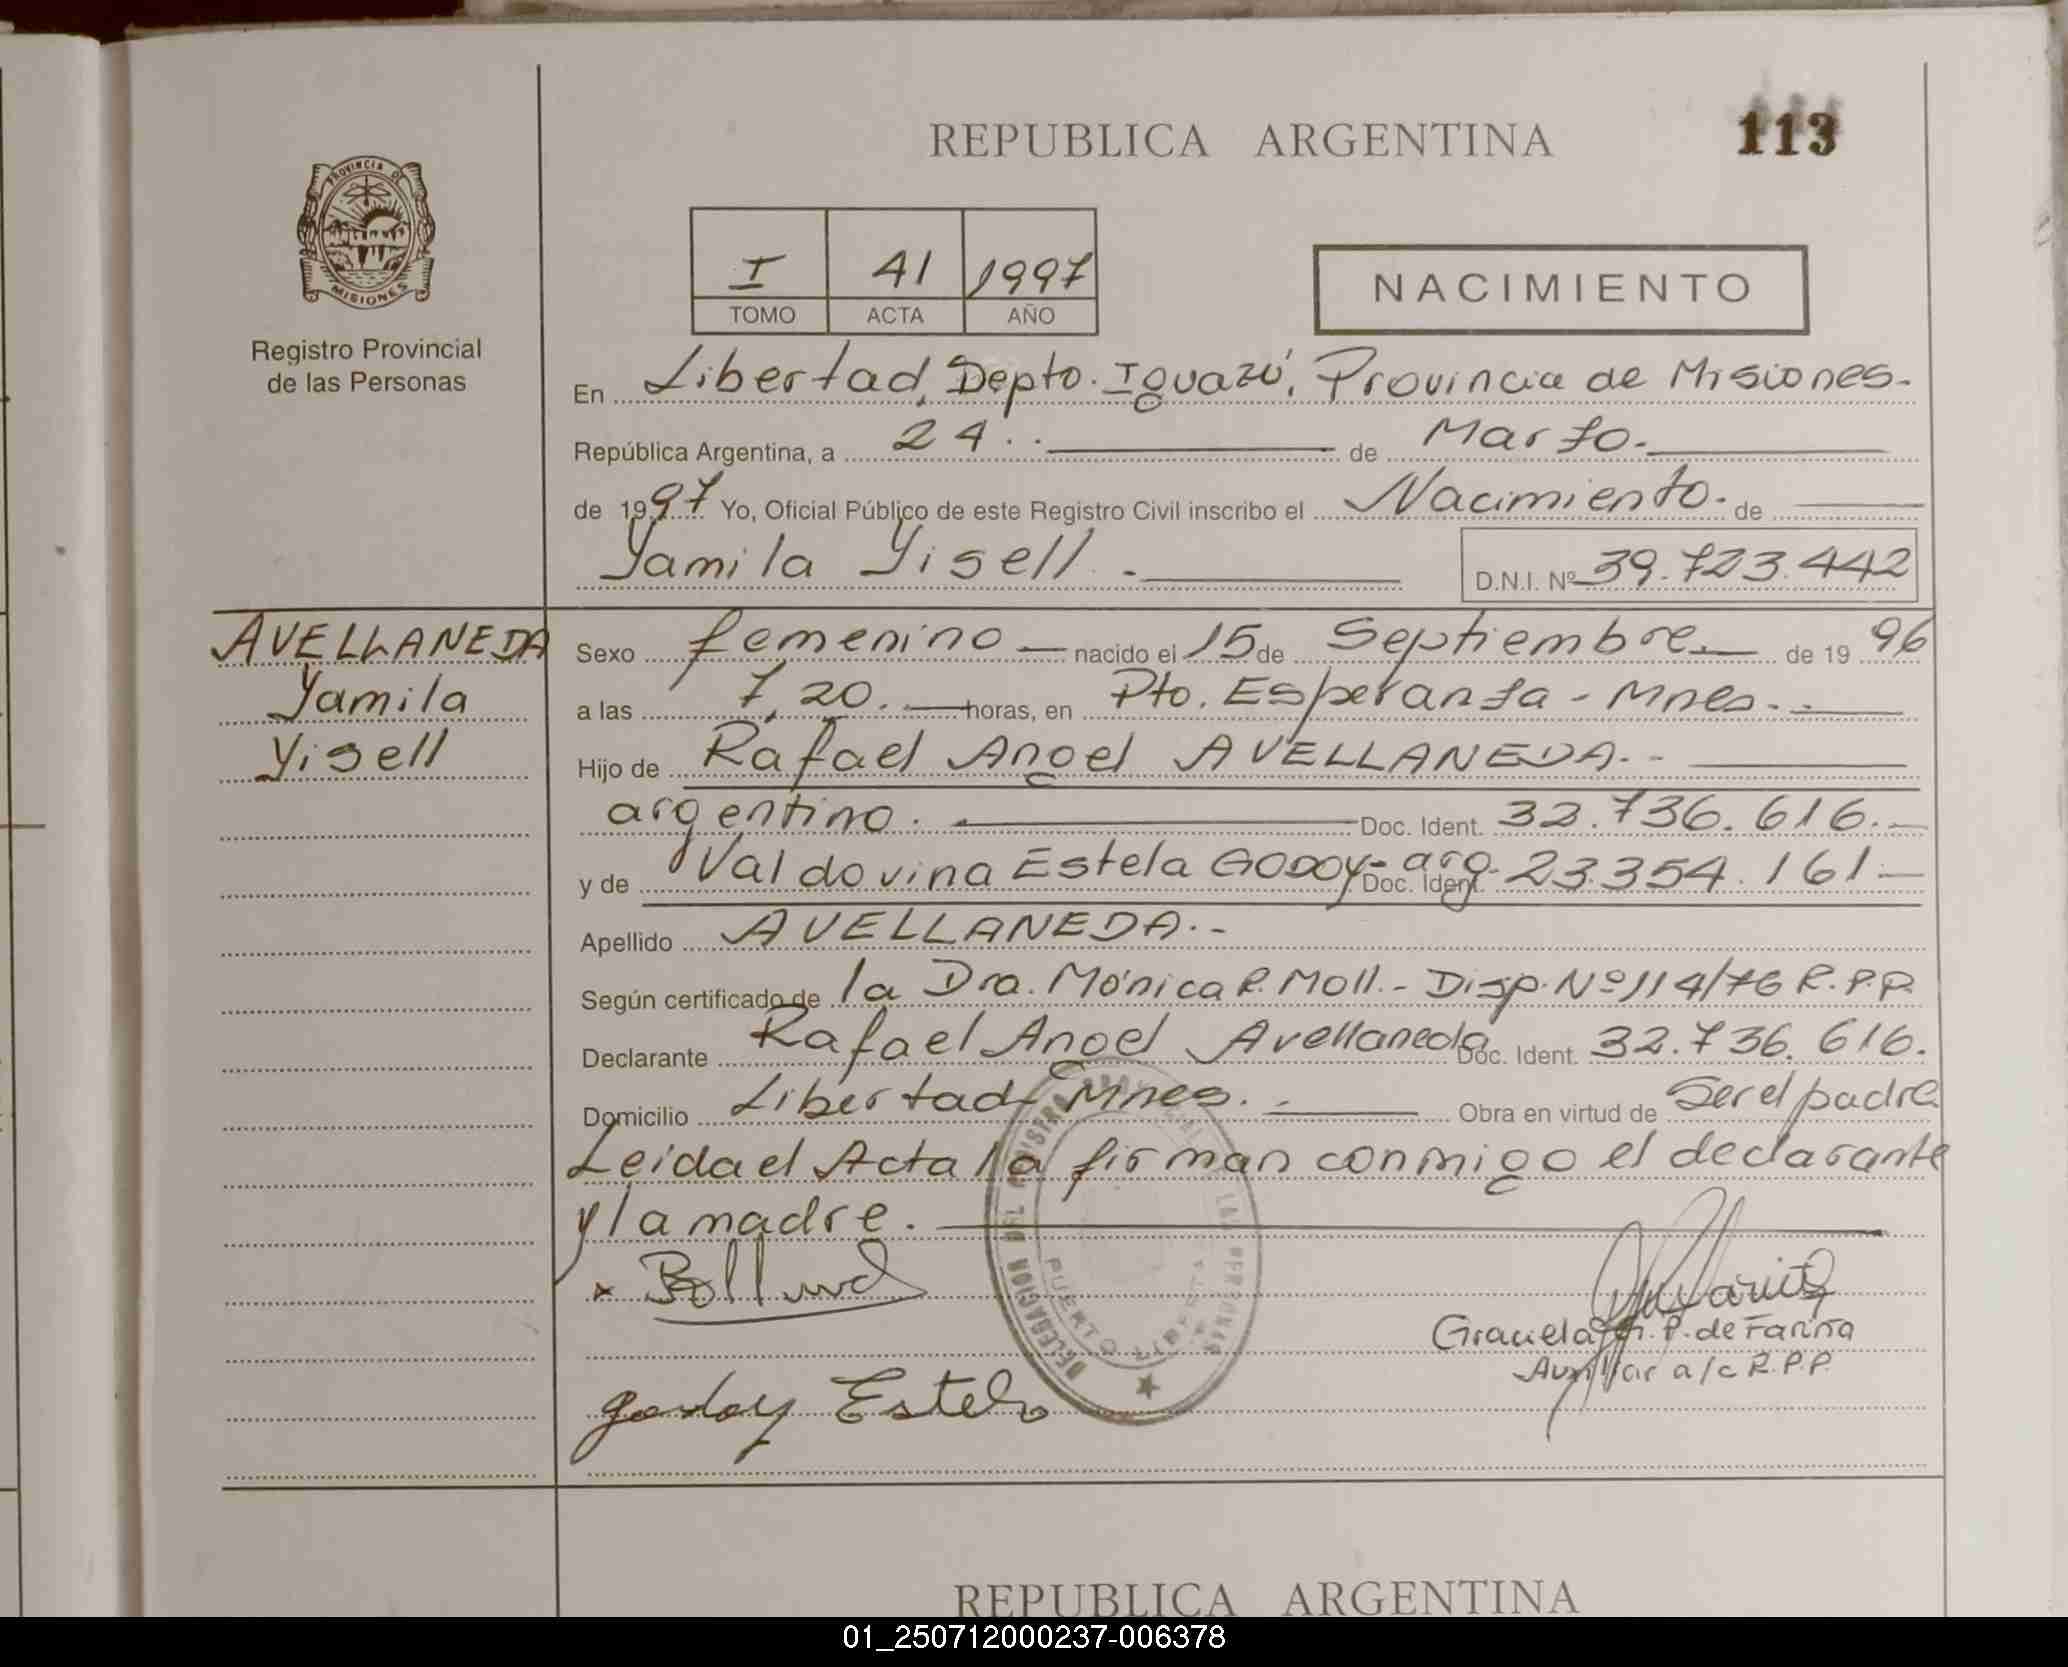 REPUBLICA ARGENTINA
113
PROVINCIA DE
MISIONES
Registro Provincial
de las Personas
I 41 1997
TOMO ACTA AÑO
NACIMIENTO
En Libertad, Depto. Iguazú, Provincia de Misiones.
República Argentina, a 24 de Marzo.
de 1997 Yo, Oficial Público de este Registro Civil inscribo el Nacimiento. de
Yamila Yisell. D.N.I. Nº 39.723.442
AVELLANEDA
Yamila
Yisell
Sexo femenino nacido el 15 de Septiembre de 1996
a las 7,20. horas, en Pto. Esperanza - Mnes.
Hijo de Rafael Angel AVELLANEDA.
argentino. Doc. Ident. 32.736.616.
y de Valdovina Estela GODOY - arg. Doc. Ident. 23.354.161
Apellido AVELLANEDA.
Según certificado de la Dra. Mónica R. Moll. - Disp. Nº 114/76 R.P.P.
Declarante Rafael Angel Avellaneda Doc. Ident. 32.736.616.
Domicilio Libertad - Mnes. Obra en virtud de Ser el padre
Leida el Acta la firman conmigo el declarante
y la madre.
DELEGACION DEL REGISTRO PROVINCIAL DE LAS PERSONAS
PUERTO LIBERTAD
Graciela P. de Fariña
Auxiliar a/c R.P.P.
godoy Estela
REPUBLICA ARGENTINA
01_250712000237-006378